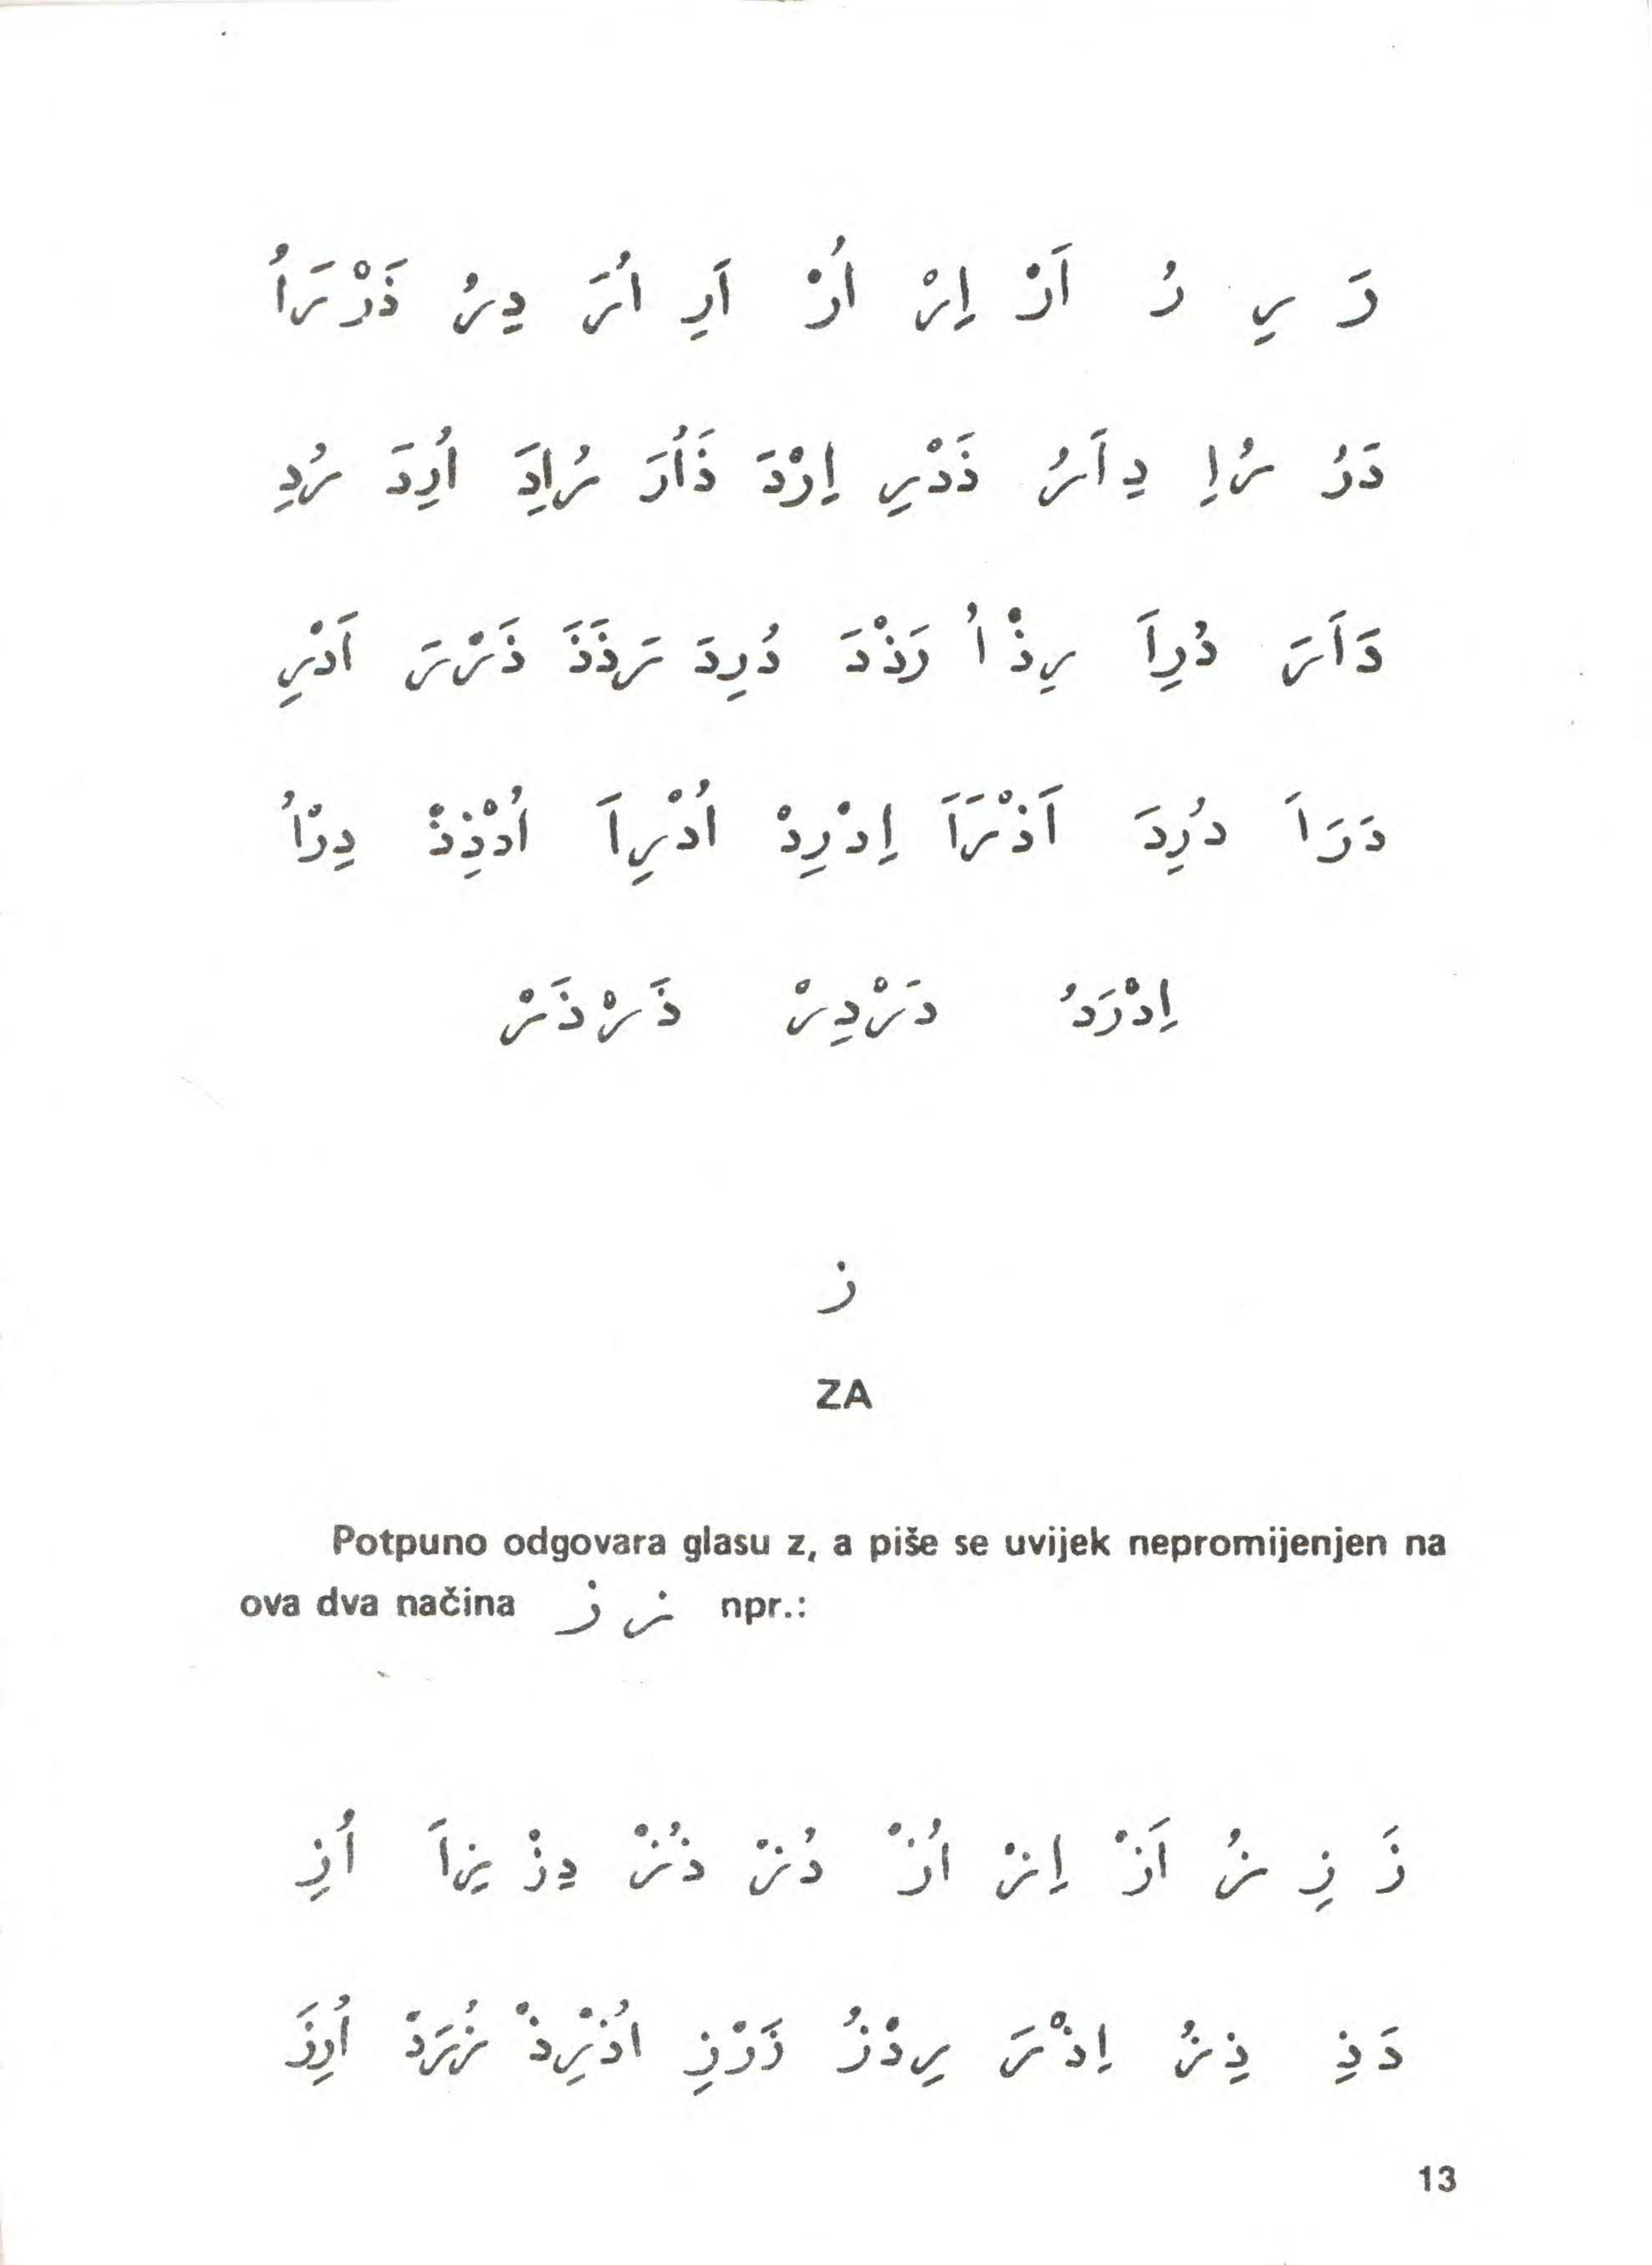 رَ رِ رُ اَرْ اِرْ اُرْ اَرِ اُرَ دِرُ ذَرْرَاُ
دَرُ رُاِ دِاَرُ ذَدْرِ اِرْدَ ذَاُرَ رُاِدَ اُرِدَ رُدِ
دَاَرَ ذُرِاَ رِذْاُ رَذْدَ ذُرِدَ رَذَذَ ذَرْرَ اَدْرِ
دَرَاَ دُرِدَ اَذْرَاَ اِدْرِدْ اُدْرِاَ اُدْذِذْ دِرْاُ
اِدْرَدُ دَرْدِرْ ذَرْذَرْ
ز
ZA
Potpuno odgovara glasu z, a piše se uvijek nepromijenjen na
ova dva načina ز ز npr.:
زَ زِ زُ اَزْ اِزْ اُزْ دُزْ ذُزْ دِزْ زِاَ اُزِ
دَذِ ذِزُ اِذْرَ رِدْزُ زَرْزِ اُذْرِذْ زُرَدْ اُرِزَ
13